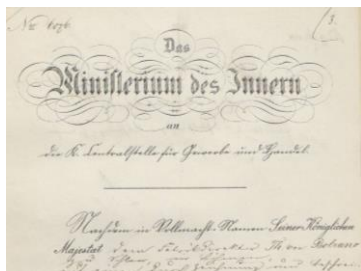 No 4076.
3.
Das
Ministerium des Innern
an
die K. Centralstelle für Gewerbe und Handel.
Nachdem in Vollmacht-Namen Seiner Königlichen
Majestat dem Fabrikdirektor Th. von Bolzano
zu